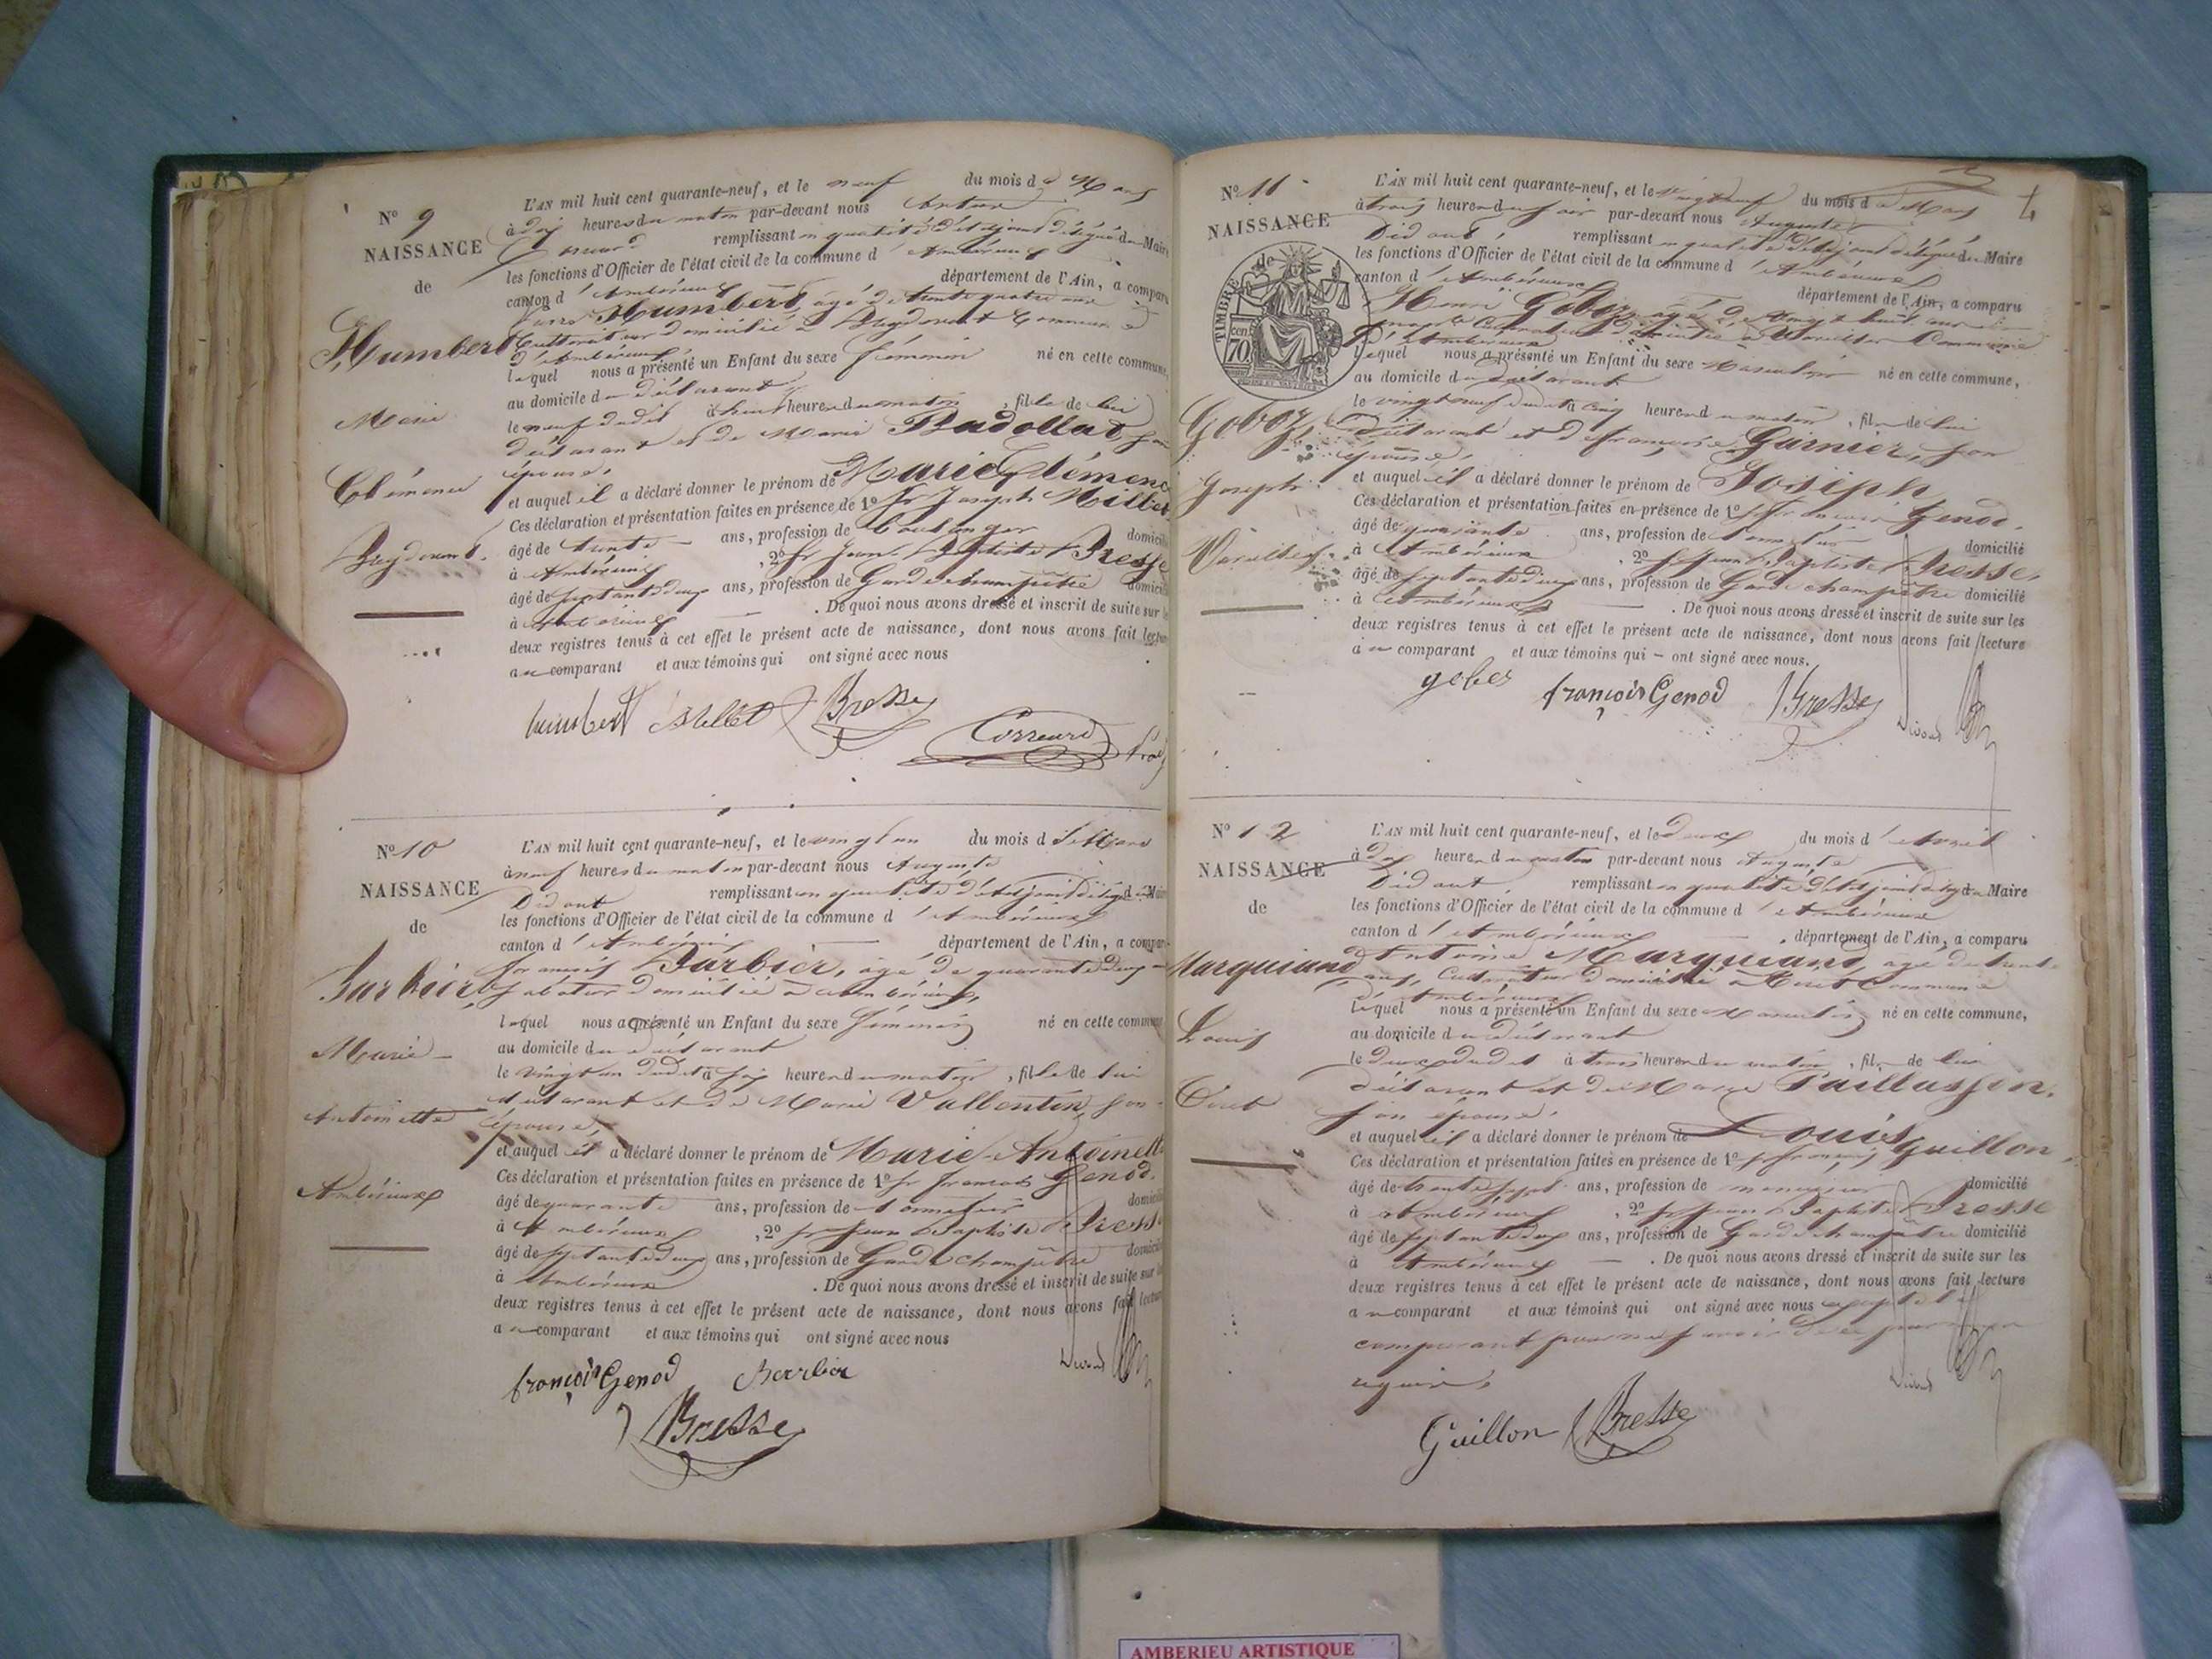 N° 9
NAISSANCE
de
Humbert
Marie
Clémence
Breydevent.
L'AN mil huit cent quarante-neuf, et le neuf du mois de Mars
à dix heures du matin par-devant nous
remplissant en qualité d'adjoint délégué du Maire
les fonctions d'Officier de l'état civil de la commune d'Ambérieux
canton d'Ambérieux département de l'Ain, a comparu
Humbert, âgé de trente quatre ans
Cultivateur domicilié à Breydevent Commune
d'Ambérieux
lequel nous a présenté un Enfant du sexe féminin né en cette commune,
au domicile du déclarant
le neuf dudit à heures du matin, fille de lui
déclarant et de Marie Badollat, son
épouse,
et auquel il a déclaré donner le prénom de Marie Clémence
Ces déclaration et présentation faites en présence de 1° sr Joseph Millet
âgé de trente ans, profession de boulanger domicilié
à Ambérieux, 2° sr Jean Baptiste Bresse
âgé de septante deux ans, profession de Garde champêtre domicilié
à Ambérieux. De quoi nous avons dressé et inscrit de suite sur les
deux registres tenus à cet effet le présent acte de naissance, dont nous avons fait lecture
au comparant et aux témoins qui ont signé avec nous
humbert Millet Bresse
N° 10
NAISSANCE
de
Barbier
Marie
Antoinette
Ambérieux
L'AN mil huit cent quarante-neuf, et le vingt un du mois de Mars
à neuf heures du matin par-devant nous Auguste
Didout remplissant en qualité d'adjoint délégué du Maire
les fonctions d'Officier de l'état civil de la commune d'Ambérieux
canton d'Ambérieux département de l'Ain, a comparu
françois Barbier, âgé de quarante deux
domicilié à Ambérieux,
lequel nous a présenté un Enfant du sexe féminin né en cette commune
au domicile du déclarant
le vingt un dudit à six heures du matin, fille de lui
déclarant et de Marie Vallentin, son
épouse,
et auquel il a déclaré donner le prénom de Marie-Antoinette
Ces déclaration et présentation faites en présence de 1° sr françois Genod.
âgé de quarante ans, profession de tonnelier domicilié
à Ambérieux, 2° sr Jean Baptiste Bresse
âgé de septante deux ans, profession de Garde champêtre domicilié
à Ambérieux. De quoi nous avons dressé et inscrit de suite sur les
deux registres tenus à cet effet le présent acte de naissance, dont nous avons fait lecture
au comparant et aux témoins qui ont signé avec nous
françois Genod Barbier
Bresse
N° 11
NAISSANCE
de
TIMBRE
70
Goboz,
Joseph
Vareilles
4
L'AN mil huit cent quarante-neuf, et le vingt neuf du mois de Mars
à trois heures du soir par-devant nous Auguste
Didout remplissant en qualité d'adjoint délégué du Maire
les fonctions d'Officier de l'état civil de la commune d'Ambérieux
canton d'Ambérieux département de l'Ain, a comparu
Goboz, âgé de vingt huit ans
domicilié à Vareilles Commune
d'Ambérieux
lequel nous a présenté un Enfant du sexe Masculin né en cette commune,
au domicile du déclarant
le vingt neuf dudit à cinq heures du matin, fils de lui
déclarant et de françoise Garnier, son
épouse,
et auquel il a déclaré donner le prénom de Joseph
Ces déclaration et présentation faites en présence de 1° sr françois Genod.
âgé de quarante ans, profession de tonnelier domicilié
à Ambérieux, 2° sr Jean Baptiste Bresse,
âgé de septante deux ans, profession de Garde champêtre domicilié
à Ambérieux. De quoi nous avons dressé et inscrit de suite sur les
deux registres tenus à cet effet le présent acte de naissance, dont nous avons fait lecture
au comparant et aux témoins qui ont signé avec nous.
françois Genod Bresse
N° 12
NAISSANCE
de
Marquiand
Louis
L'AN mil huit cent quarante-neuf, et le deux du mois d'Avril
à dix heures du matin par-devant nous Auguste
Didout remplissant en qualité d'adjoint délégué du Maire
les fonctions d'Officier de l'état civil de la commune d'Ambérieux
canton d'Ambérieux, département de l'Ain, a comparu
Antoine Marquiand, âgé de trente
ans, Cultivateur domicilié à Commune
d'Ambérieux
lequel nous a présenté un Enfant du sexe Masculin né en cette commune,
au domicile du déclarant
le deux dudit à trois heures du matin, fils de lui
déclarant et de Marie Paillasson,
son épouse,
et auquel il a déclaré donner le prénom de Louis
Ces déclaration et présentation faites en présence de 1° sr françois Guillon,
âgé de trente sept ans, profession de menuisier domicilié
à Ambérieux, 2° sr Jean Baptiste Bresse
âgé de septante deux ans, profession de Garde champêtre domicilié
à Ambérieux. De quoi nous avons dressé et inscrit de suite sur les
deux registres tenus à cet effet le présent acte de naissance, dont nous avons fait lecture
au comparant et aux témoins qui ont signé avec nous excepté le
comparant pour ne savoir de ce
requis.
Guillon Bresse
AMBERIEU ARTISTIQUE